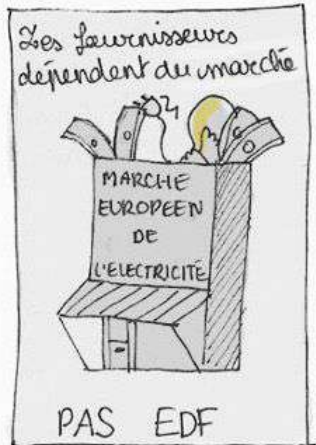 Les fournisseurs
dépendent du marché
MARCHE
EUROPEEN
DE
L'ELECTRICITÉ
PAS EDF